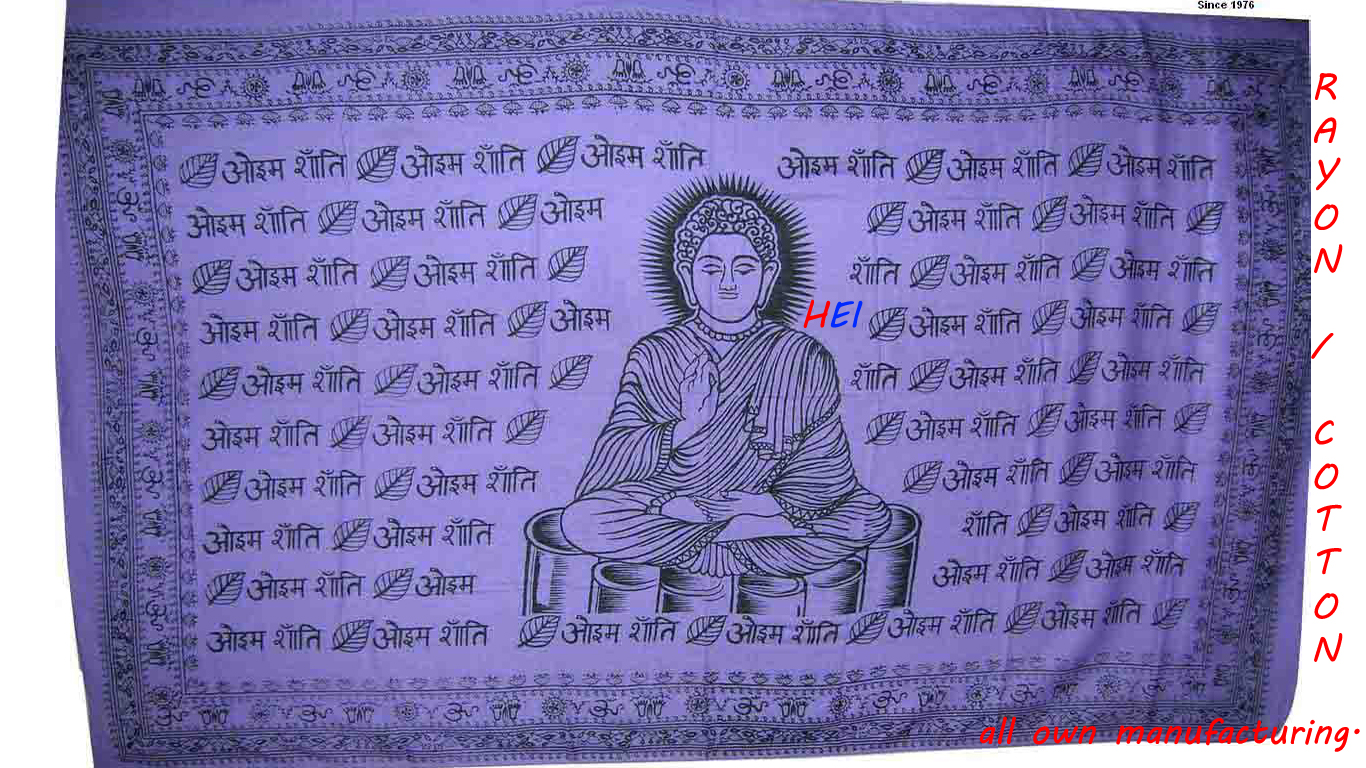 Since 1976
ओइम शाँति ओइम शाँति ओइम शाँति ओइम शाँति ओइम शाँति ओइम शाँति
ओइम शाँति ओइम शाँति ओइम ओइम शाँति ओइम शाँति
ओइम शाँति ओइम शाँति शाँति ओइम शाँति ओइम शाँति
ओइम शाँति ओइम शाँति ओइम HEI ओइम शाँति ओइम शाँति
ओइम शाँति ओइम शाँति शाँति ओइम शाँति ओइम शाँति
ओइम शाँति ओइम शाँति ओइम शाँति ओइम शाँति
ओइम शाँति ओइम शाँति ओइम शाँति ओइम शाँति
ओइम शाँति ओइम शाँति शाँति ओइम शाँति
ओइम शाँति ओइम ओइम शाँति ओइम शाँति
ओइम शाँति ओइम शाँति ओइम शाँति ओइम शाँति ओइम शाँति ओइम शाँति
RAYON / COTTON
all own manufacturing.